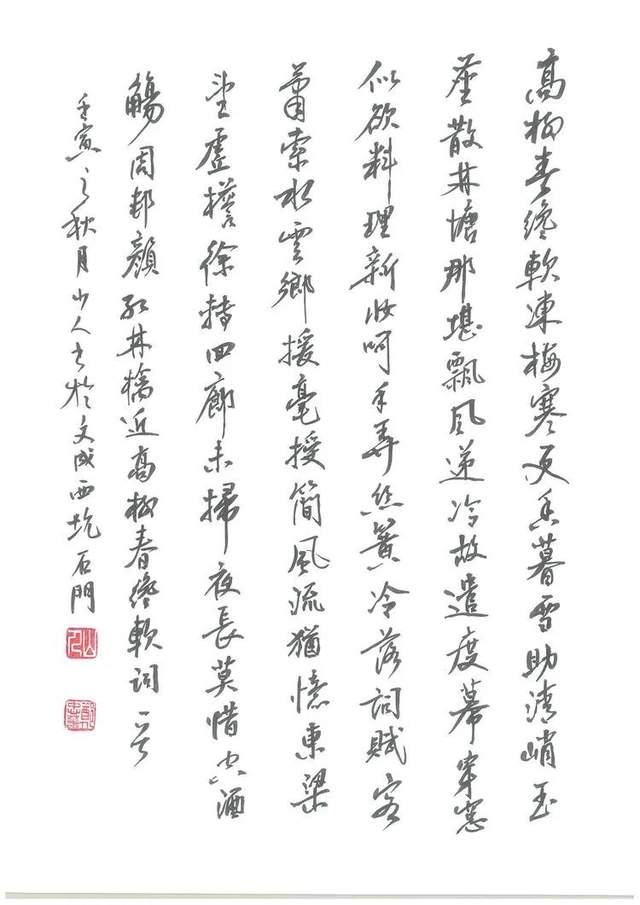 高柳春纔軟凍梅寒更香暮雪助清峭玉
塵散林塘那堪飄風遞冷故遣度幕穿窗
似欲料理新妝呵手弄絲簧冷落詞賦客
蕭索水雲鄉援毫授簡風流猶憶東梁
望虛檐徐轉回廊未掃夜長莫惜空酒
觴周邦顏紅林檎近高柳春纔軟詞一首
壬寅之秋月山人書於文成西坑石門
山人